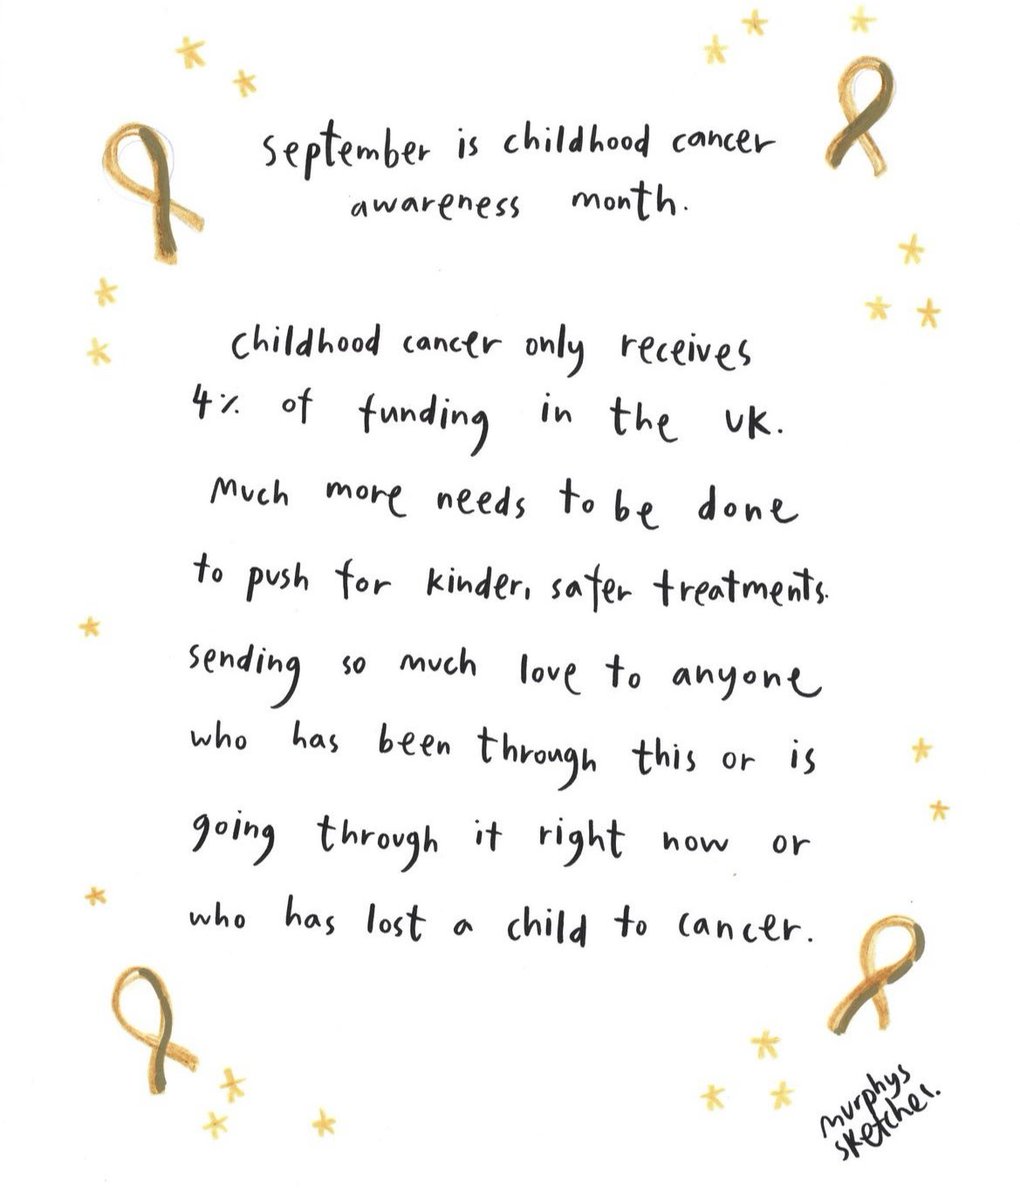 september is childhood cancer
awareness month.
childhood cancer only receives
4% of funding in the UK.
Much more needs to be done
to push for kinder, safer treatments.
sending so much love to anyone
who has been through this or is
going through it right now or
who has lost a child to cancer.
murphys
sketches.